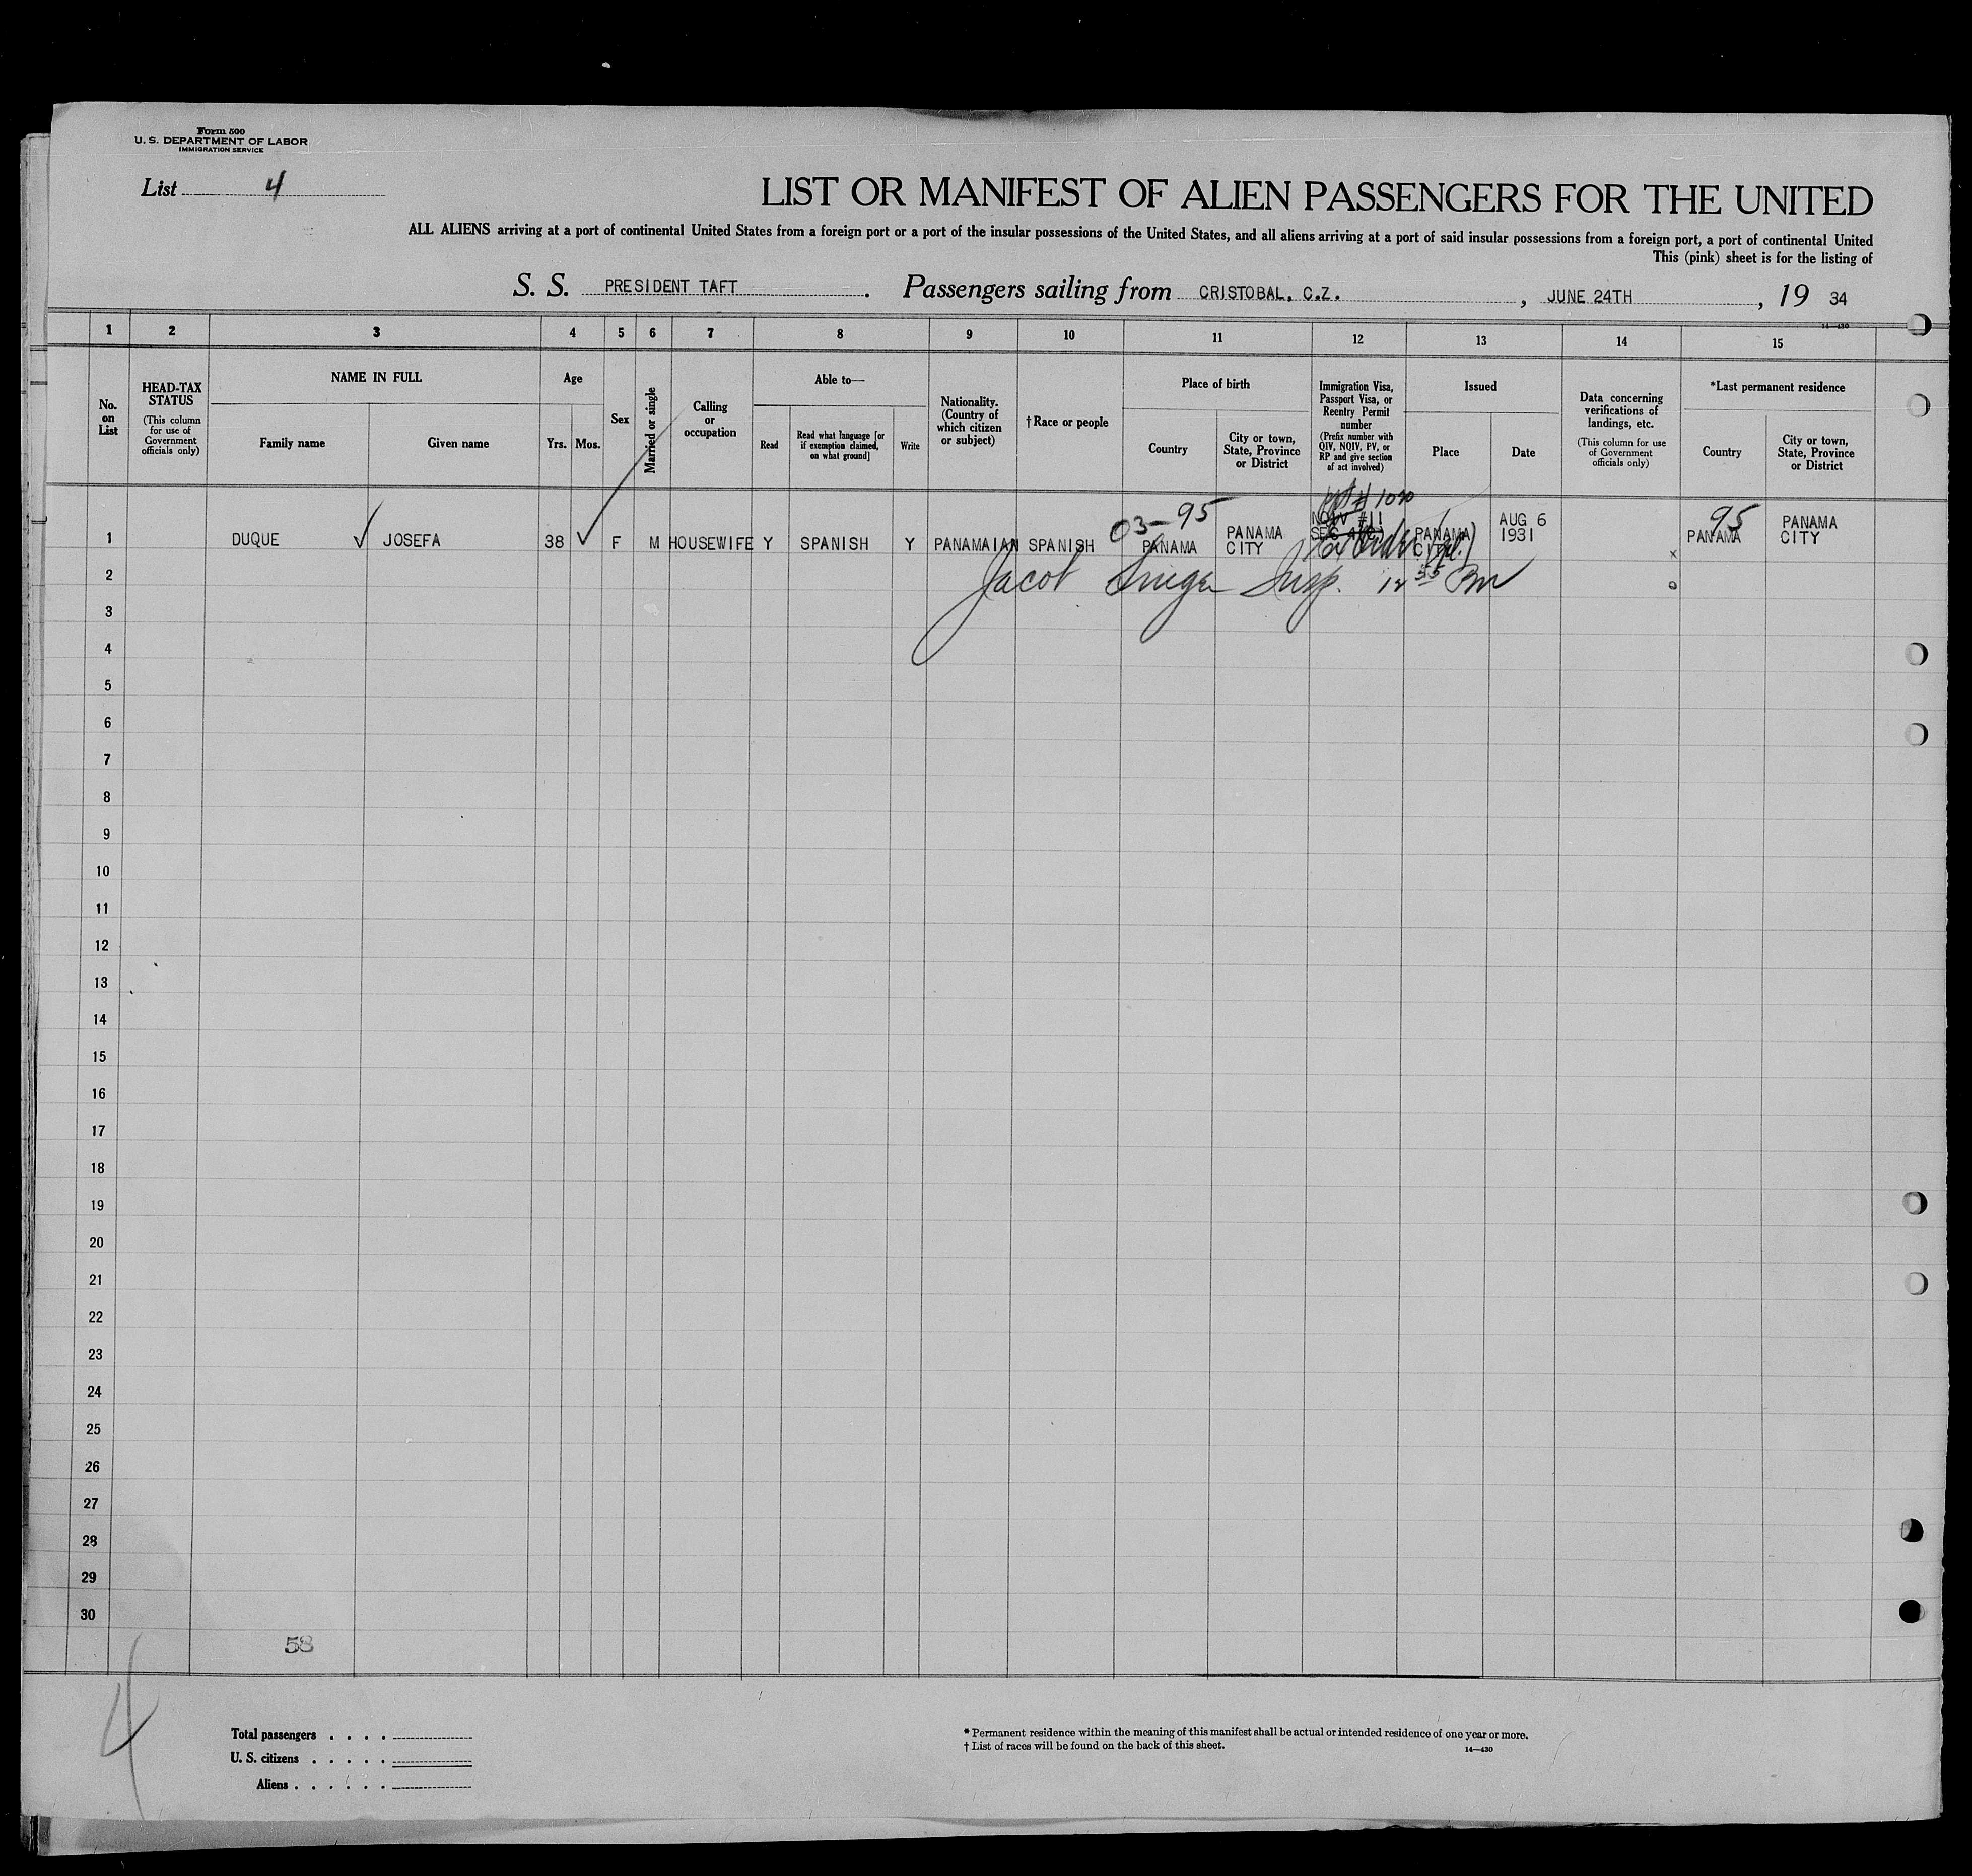 Form 500
U. S. DEPARTMENT OF LABOR
IMMIGRATION SERVICE
List 4
LIST OR MANIFEST OF ALIEN PASSENGERS FOR THE UNITED
ALL ALIENS arriving at a port of continental United States from a foreign port or a port of the insular possessions of the United States, and all aliens arriving at a port of said insular possessions from a foreign port, a port of continental United
This (pink) sheet is for the listing of
S. S. PRESIDENT TAFT. Passengers sailing from CRISTOBAL, C.Z., JUNE 24TH, 19 34
14—430
1 2 3 4 5 6 7 8 9 10 11 12 13 14 15
No. on List
HEAD-TAX STATUS
(This column for use of Government officials only)
NAME IN FULL
Family name
Given name
Age
Yrs. Mos.
Sex
Married or single
Calling or occupation
Able to—
Read
Read what language [or if exemption claimed, on what ground]
Write
Nationality. (Country of which citizen or subject)
†Race or people
Place of birth
Country
City or town, State, Province or District
Immigration Visa, Passport Visa, or Reentry Permit number
(Prefix number with QIV, NQIV, PV, or RP and give section of act involved)
Issued
Place
Date
Data concerning verifications of landings, etc.
(This column for use of Government officials only)
*Last permanent residence
Country
City or town, State, Province or District
03-95
95
1 DUQUE ✓ JOSEFA 38 ✓ F M HOUSEWIFE Y SPANISH Y PANAMAIAN SPANISH PANAMA PANAMA CITY NQIV #11 PANAMA CITY AUG 6 1931 PANAMA PANAMA CITY
x
2 Jacob Insp. 12 55 Pm
3
4
5
6
7
8
9
10
11
12
13
14
15
16
17
18
19
20
21
22
23
24
25
26
27
28
29
30
58
4
Total passengers . . . .
U. S. citizens . . . . .
Aliens . . . . . .
* Permanent residence within the meaning of this manifest shall be actual or intended residence of one year or more.
† List of races will be found on the back of this sheet.
14—430